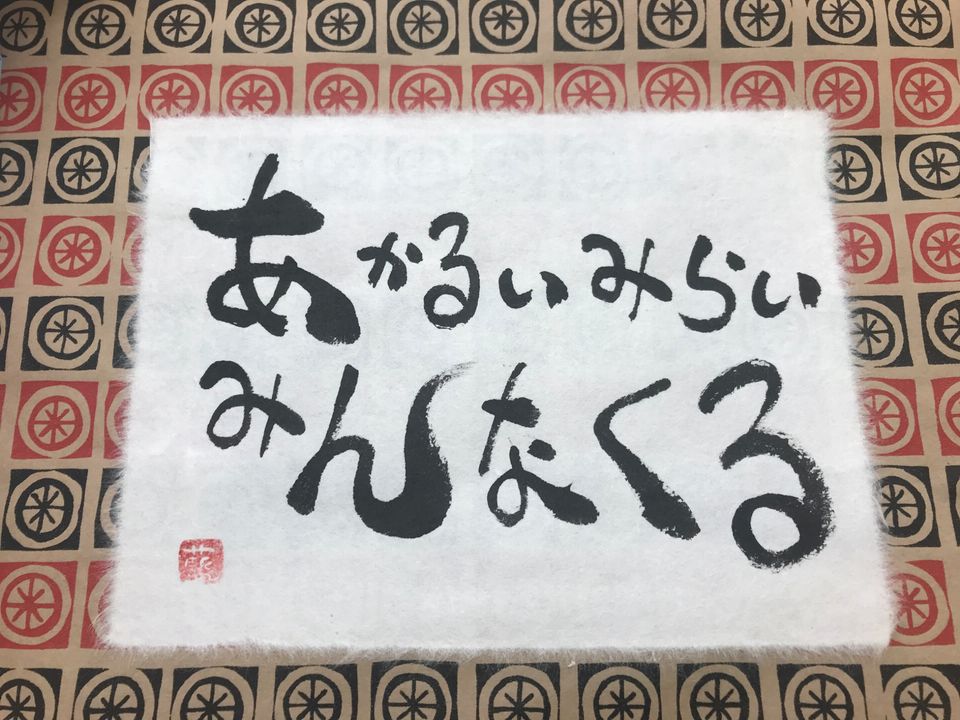 あかるいみらい
みんなくる